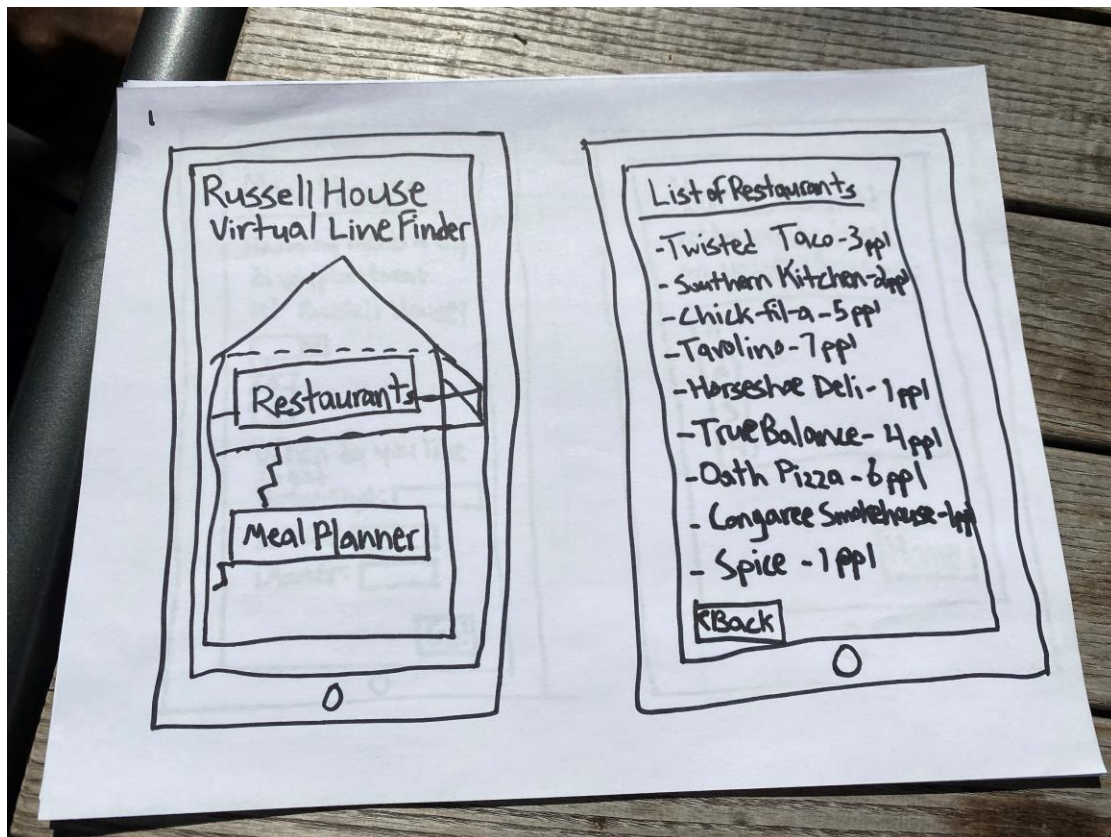 1
Russell House
Virtual Line Finder
Restaurants
Meal Planner
List of Restaurants
-Twisted Taco-3ppl
-Southern Kitchen-2ppl
-Chick-fil-a-5ppl
-Tavolino-7ppl
-Horseshoe Deli-1ppl
-True Balance-4ppl
-Oath Pizza-6ppl
-Congaree Smokehouse-1ppl
-Spice-1ppl
<Back